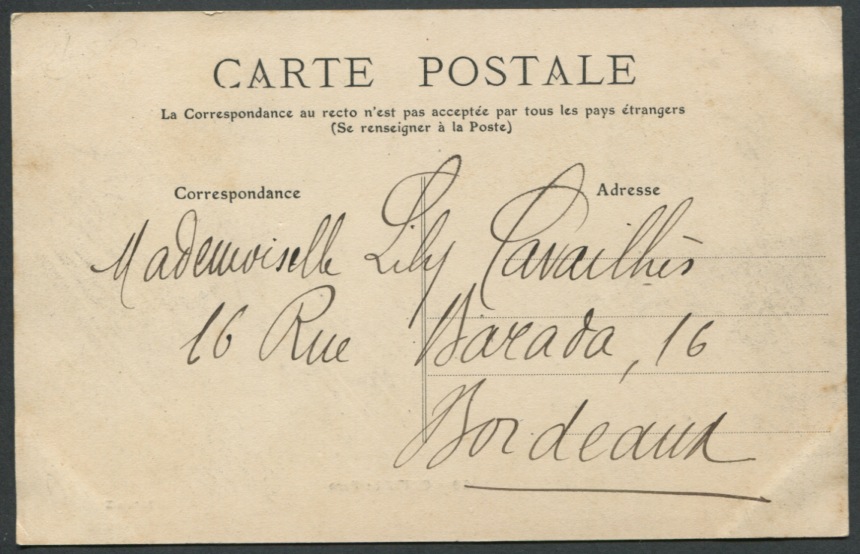 CARTE POSTALE
La Correspondance au recto n'est pas acceptée par tous les pays étrangers
(Se renseigner à la Poste)
Correspondance
Adresse
Mademoiselle Lily Cavailhès
16 Rue Barada, 16
Bordeaux